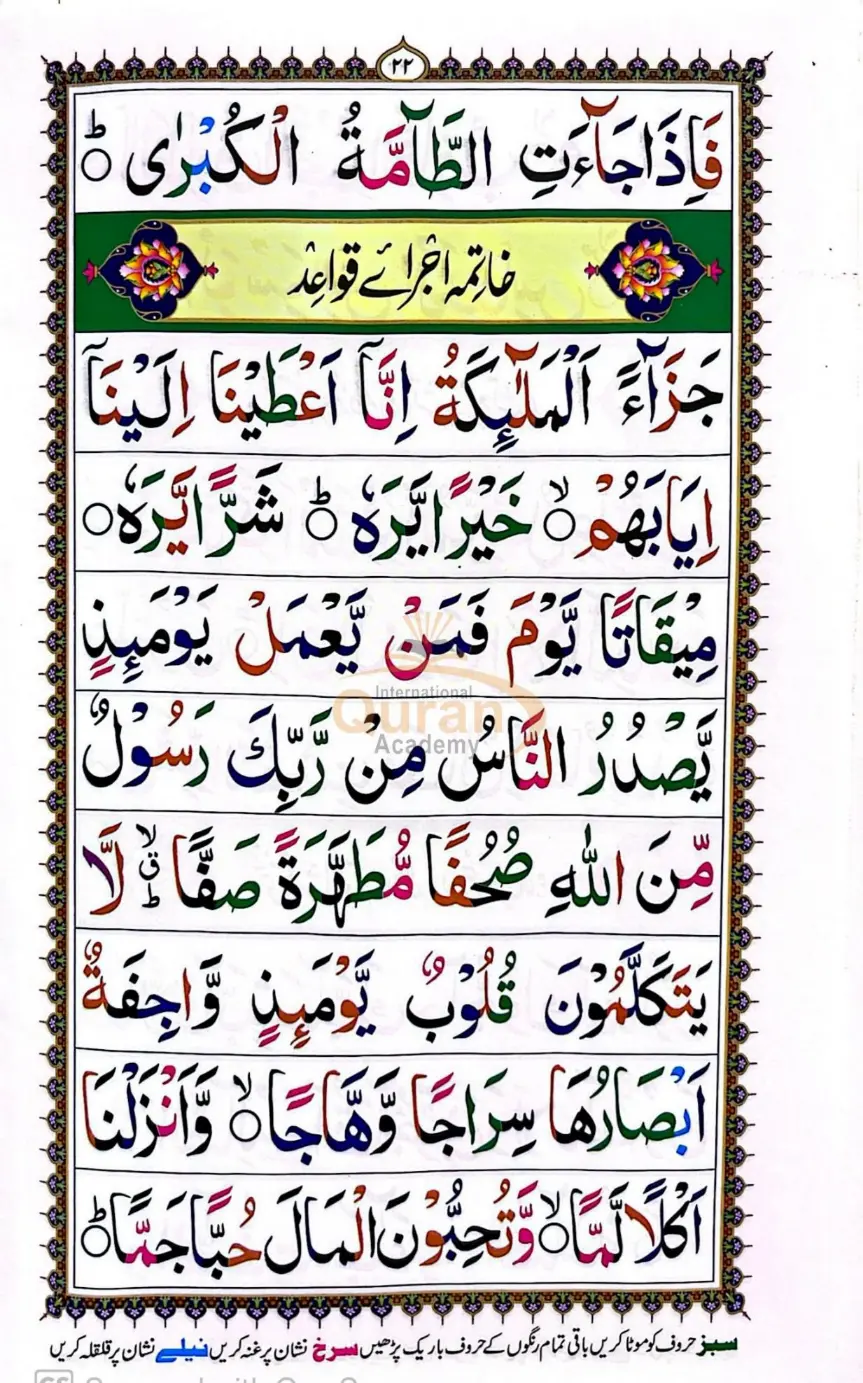 ٢٢
فَاِذَا جَآءَتِ الطَّآمَّةُ الْكُبْرٰى ۝ؕ
خاتمہ اجرائے قواعد
جَزَآءً اَلْمَلٰٓئِكَةُ اِنَّاۤ اَعْطَيْنَا اِلَيْنَاۤ
اِيَابَهُمْ ۝ۙ خَيْرًا يَّرَهٗ ۝ؕ شَرًّا يَّرَهٗ ۝
مِيْقَاتًا يَّوْمَ فَمَنْ يَّعْمَلْ يَوْمَئِذٍ
يَّصْدُرُ النَّاسُ مِنْ رَّبِّكَ رَسُوْلٌ
مِّنَ اللّٰهِ صُحُفًا مُّطَهَّرَةً صَفًّا ؕۙ لَّا
يَتَكَلَّمُوْنَ قُلُوْبٌ يَّوْمَئِذٍ وَّاجِفَةٌ
اَبْصَارُهَا سِرَاجًا وَّهَّاجًا ۝ۙ وَّاَنْزَلْنَا
اَكْلًا لَّمًّا ۝ۙ وَّتُحِبُّوْنَ الْمَالَ حُبًّا جَمًّا ۝ؕ
سبز حروف کو موٹا کریں باقی تمام رنگوں کے حروف باریک پڑھیں سرخ نشان پر غنہ کریں نیلے نشان پر قلقلہ کریں
International
Quran
Academy